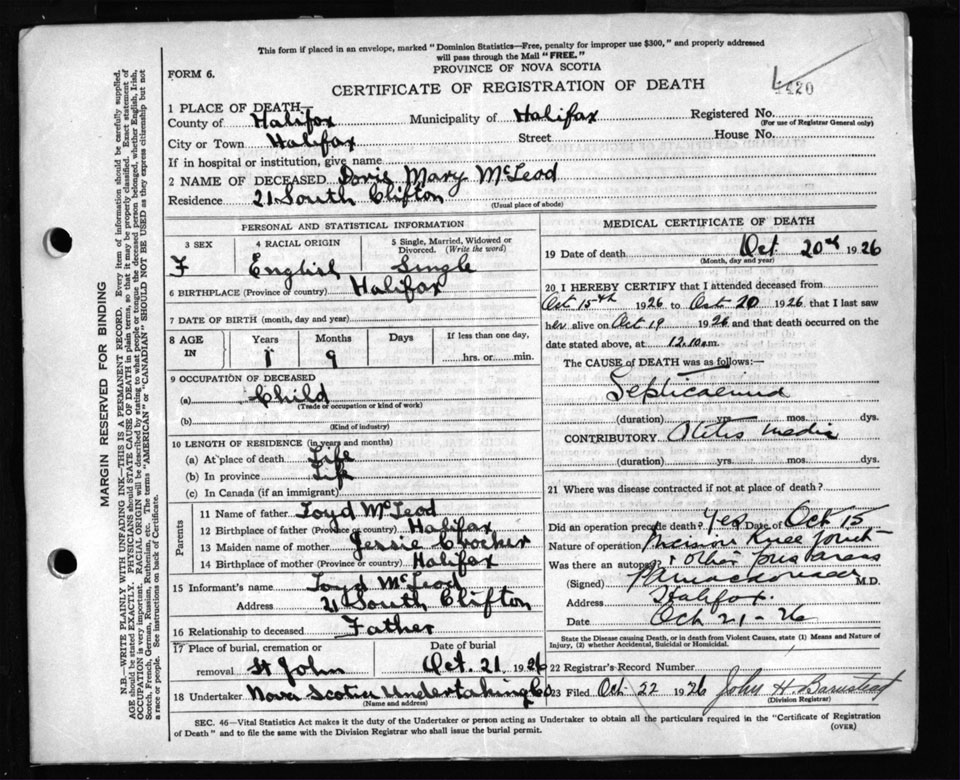 This form if placed in an envelope, marked "Dominion Statistics—Free, penalty for improper use $300," and properly addressed
will pass through the Mail "FREE."
FORM 6.
PROVINCE OF NOVA SCOTIA
CERTIFICATE OF REGISTRATION OF DEATH
4420
1 PLACE OF DEATH—
County of Halifax Municipality of Halifax Registered No.
(For use of Registrar General only)
City or Town Halifax Street House No.
If in hospital or institution, give name
2 NAME OF DECEASED Doris Mary McLeod
Residence 21 South Clifton
(Usual place of abode)
PERSONAL AND STATISTICAL INFORMATION
3 SEX 4 RACIAL ORIGIN 5 Single, Married, Widowed or
Divorced. (Write the word)
F English Single
6 BIRTHPLACE (Province or country) Halifax
7 DATE OF BIRTH (month, day and year)
8 AGE IN Years Months Days If less than one day,
1 9 hrs. or min.
9 OCCUPATION OF DECEASED
(a) Child
(Trade or occupation or kind of work)
(b)
(Kind of industry)
10 LENGTH OF RESIDENCE (in years and months)
(a) At place of death Life
(b) In province Life
(c) In Canada (if an immigrant)
Parents
11 Name of father Loyd McLeod
12 Birthplace of father (Province or country) Halifax
13 Maiden name of mother Jessie Crocker
14 Birthplace of mother (Province or country) Halifax
15 Informant's name Loyd McLeod
Address 21 South Clifton
16 Relationship to deceased Father
17 Place of burial, cremation or Date of burial
removal St John Oct. 21 1926
18 Undertaker Nova Scotia Undertaking Co
(Name and address)
MEDICAL CERTIFICATE OF DEATH
19 Date of death Oct 20th 1926
(Month, day and year)
20 I HEREBY CERTIFY that I attended deceased from
Oct 15th 1926 to Oct 20 1926, that I last saw
her alive on Oct 19 1926 and that death occurred on the
date stated above, at 12.10 am.
The CAUSE of DEATH was as follows:—
Septicaemia
(duration) yrs. mos. dys.
CONTRIBUTORY Otitis media
(duration) yrs. mos. dys.
21 Where was disease contracted if not at place of death?
Did an operation precede death? Yes Date of Oct 15
Nature of operation Incision Knee Joint
Was there an autopsy? other pus areas
(Signed) M.D.
Address Halifax.
Date Oct 21-26
State the Disease causing Death, or in death from Violent Causes, state (1) Means and Nature of
Injury, (2) whether Accidental, Suicidal or Homicidal.
22 Registrar's Record Number
23 Filed Oct 22 1926 John H. Barnstead
(Division Registrar)
SEC. 46—Vital Statistics Act makes it the duty of the Undertaker or person acting as Undertaker to obtain all the particulars required in the "Certificate of Registration
of Death" and to file the same with the Division Registrar who shall issue the burial permit.
(OVER)
MARGIN RESERVED FOR BINDING
N.B.—WRITE PLAINLY WITH UNFADING INK—THIS IS A PERMANENT RECORD. Every item of information should be carefully supplied.
AGE should be stated EXACTLY. PHYSICIANS should STATE CAUSE OF DEATH in plain terms, so that it may be properly classified. Exact statement of
OCCUPATION is very important. RACIAL ORIGIN will be described by stating to what people or tongue the deceased person belonged, whether English, Irish,
Scotch, French, German, Russian, Ruthenian, etc. The terms "AMERICAN" or "CANADIAN" SHOULD NOT BE USED as they express citizenship but not
a race or people. See instructions on back of Certificate.